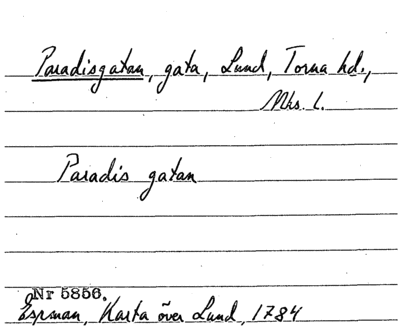 Paradisgatan, gata, Lund, Torna hd.,
Mhs. l.
Paradis gatan
Nr 5856.
Espman, Karta över Lund, 1784